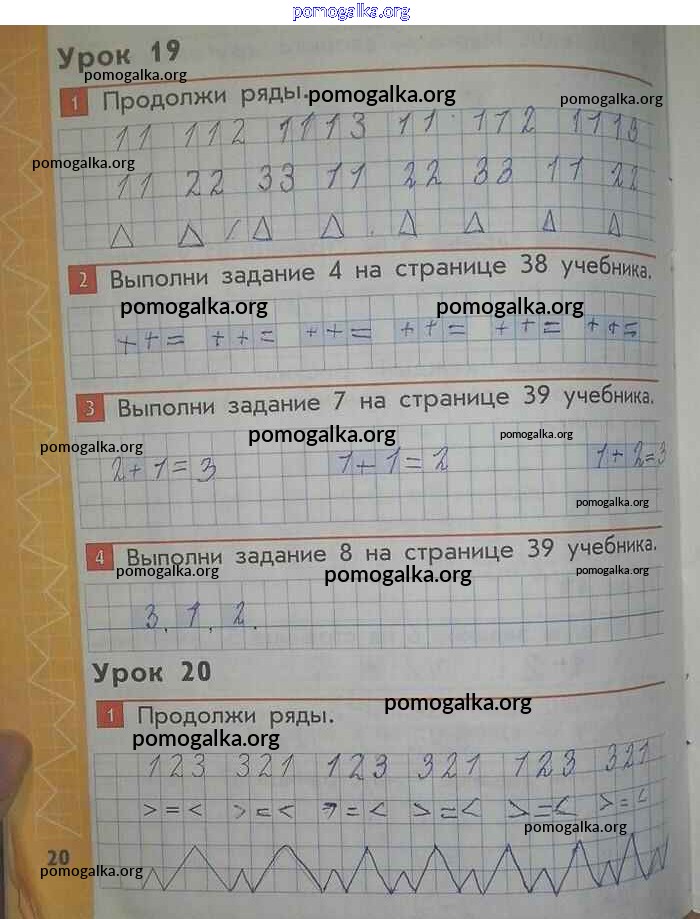 pomogalka.org
Урок 19
pomogalka.org
1 Продолжи ряды. pomogalka.org pomogalka.org
11 112 1113 11 112 1113
pomogalka.org
11 22 33 11 22 33 11 22
2 Выполни задание 4 на странице 38 учебника.
pomogalka.org pomogalka.org
++= ++= ++= ++= ++= ++=
3 Выполни задание 7 на странице 39 учебника.
pomogalka.org pomogalka.org pomogalka.org
2+1=3 1+1=2 1+2=3
pomogalka.org
4 Выполни задание 8 на странице 39 учебника.
pomogalka.org pomogalka.org pomogalka.org
3, 1, 2.
Урок 20
pomogalka.org
1 Продолжи ряды.
pomogalka.org
123 321 123 321 123 321
>=< >=< >=< >=< >=< >=<
pomogalka.org
20
pomogalka.org pomogalka.org